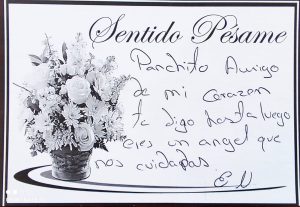 Sentido Pésame
Panchito Amigo
de mi corazon
te digo hasta luego
eres un angel que
nos cuidaras
E N